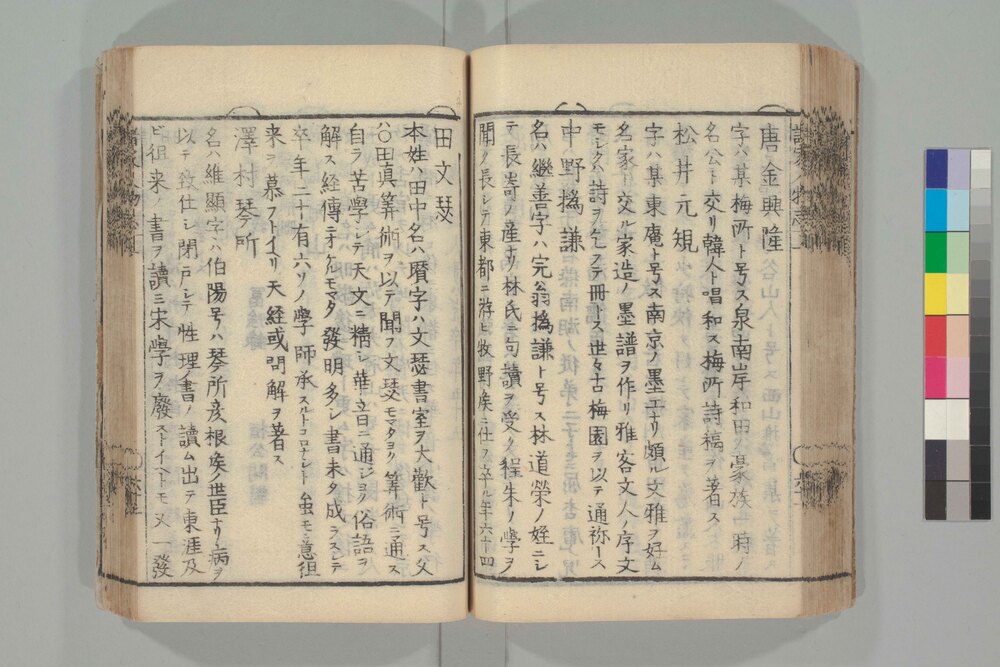 唐金興隆
字ハ某梅所ト号ス泉南岸和田ノ豪族ニ乄一時ノ
名公ト交リ韓人ト唱和ス梅所詩稿ヲ著ス
松井元規
字ハ某東庵ト号ス南京ノ墨工ナリ頗ル文雅ヲ好ム
名家ト交ル家造ノ墨譜ヲ作リ雅客文人ノ序文
モシクハ詩ヲ乞フテ冊トス世々古梅園ヲ以テ通称トス
中野撝謙
名ハ継善字ハ完翁撝謙ト号ス林道榮ノ姪ニシ
テ長﨑ノ産ナリ林氏ニ句讀ヲ受ク程朱ノ學ヲ
聞ク長シテ東都ニ游ヒ牧野矦ニ仕フ卒ル年六十四
田文瑟
本姓ハ田中名ハ暦字ハ文瑟書室ヲ大歡ト号ス父
ハ田真算術ヲ以テ聞フ文瑟モマタヨク算術ニ通ス
自ラ苦學シテ天文ニ精シ華音ニ通シヨク俗語ヲ
解ス経傳ニオケルモマタ發明多シ書未タ成ラスシテ
卒年二十有六ソノ學師承スルトコロナシト虽モ意徂
来ヲ慕フトイリ天経或問解ヲ著ス
澤村琴所
名ハ維顯字ハ伯陽号ハ琴所彦根矦ノ世臣ナリ病ヲ
以テ致仕シ閉戸シテ性理ノ書ノ讀ム出テ東涯及
ビ徂来ノ書ヲ讀ミ宋學ヲ廢ストイヘトモ又一發